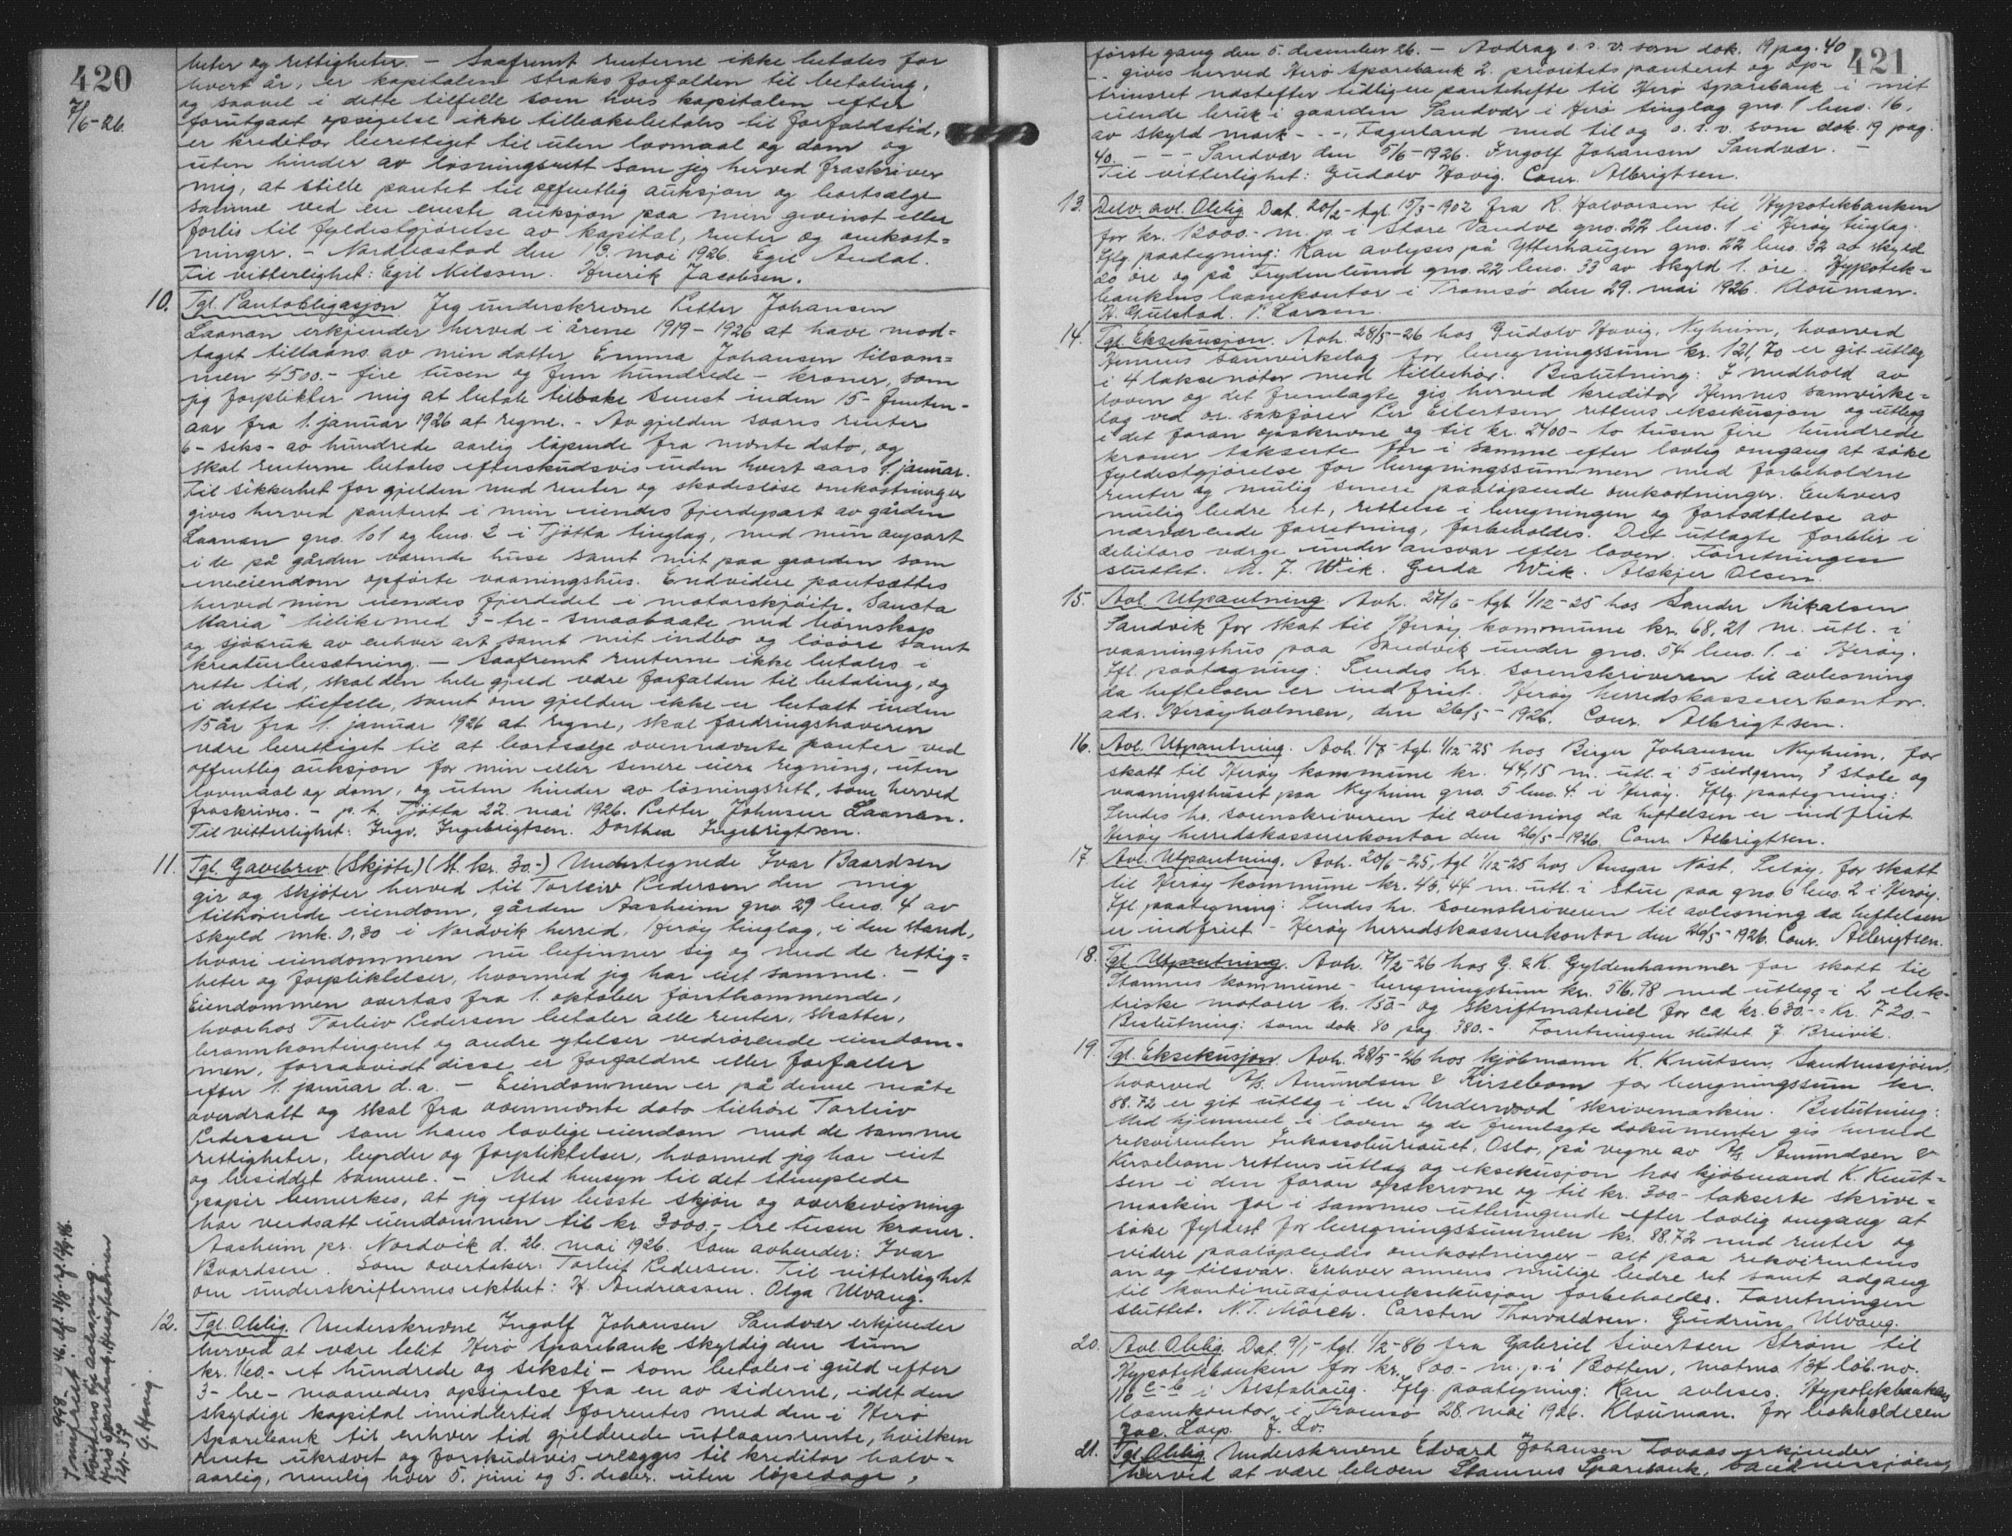 420
7/6-26.
heter og rettigheter. - Saafremt renterne ikke betales for
hvert år, er kapitalen straks forfalden til betaling,
og saavel i dette tilfelle som hvis kapitalen efter
forutgaat opsigelse ikke tilbakebetales til forfaldstid,
er kreditor berettiget til uten lovmaal og dom og
uten hinder av løsningsrett som jeg herved fraskriver
mig, at stille pantet til offentlig auksjon og bortsælge
samme ved en eneste auksjon paa min gevinst eller
forlis til fyldestgjørelse av kapital, renter og omkost=
ninger. - Nordleastad den 13. mai 1926. Egil Andal.
Til vitterlighet: Egil Nilssen. Henrik Jacobsen.
10. Tgl. Pantobligasjon Jeg underskrevne Petter Johansen
Laanan erkjender herved i årene 1919-1926 at have mod=
taget tillaans av min datter Emma Johansen tilsam=
men 4500.- fire tusen og fem hundrede - kroner, som
jeg forplikter mig at betale tilbake senest inden 15- femten-
aar fra 1. januar 1926 at regne. - Av gjelden svares renter
6- seks- av hundrede aarlig løpende fra nævnte dato, og
skal renterne betales efterskudsvis inden hvert aars 1. januar.
Til sikkerhet for gjelden med renter og skadesløse omkostninger
gives herved panteret i min eiendes fjerdepart av gården
Laanan gno. 101 og bno. 2 i Tjøtta tinglag, med min anpart
i de på gården værende huse samt mit paa gaarden som
eneeiendom opførte vaaningshus. Endvidere pantsættes
herved min eiendes fjerdedel i motorskjøite "Sancta
Maria" tillikemed 3-tre- smaabaate med tilbehør
og sjøbruk av enhver art samt mit indbo og løsøre samt
kreaturbesætning. - Saafremt renterne ikke betales i
rette tid, skal den hele gjeld være forfalden til betaling, og
i dette tilfelle, samt om gjelden ikke er betalt inden
15 år fra 1. januar 1926 at regne, skal fordringshaveren
være berettiget til at bortsælge ovennævnte panter ved
offentlig auksjon for min eller senere eiers regning, uten
lovmaal og dom, og uten hinder av løsningsrett, som herved
fraskrives. - p.t. Tjøtta 22. mai 1926. Petter Johansen Laanan.
Til vitterlighet: Ingv. Ingebrigtsen. Dorthea Ingebrigtsen.
11. Tgl. Gavebrev (Skjøte) (St. kr. 30.-) Undertegnede Ivar Baardsen
gir og skjøter herved til Torleiv Pedersen den mig
tilhørende eiendom, gården Aasheim gno 29 bno. 4 av
skyld mk. 0,30 i Nordvik herred, Herøy tinglag, i den stand,
hvori eiendommen nu befinner sig og med de rettig=
heter og forpliktelser, hvormed jeg har eiet samme. -
Eiendommen overtas fra 1. oktober førstkommende,
hvorhos Torleiv Pedersen betaler alle renter, skatter,
brannkontingent og andre ytelser vedrørende eiendom=
men, forsaavidt disse er forfaldne eller forfaller
efter 1. januar d.a. - Eiendommen er på denne måte
overdratt og skal fra ovennevnte dato tilhøre Torleiv
Pedersen som hans lovlige eiendom med de samme
rettigheter, byrder og forpliktelser, hvormed jeg har eiet
og besiddet samme. - Med hensyn til det stemplede
papir bemerkes, at jeg efter beste skjøn og overbevisning
har verdsatt eiendommen til kr. 3000,- tre tusen kroner.
Aasheim pr. Nordvik d. 26. mai 1926. Som avhender: Ivar
Baardsen. Som overtaker: Torleif Pedersen. Til vitterlighet
om underskrifternes ekthet: H. Andreassen. Olga Ulvang.
12. Tgl. Oblig. Underskrevne Ingolf Johansen Sandvær erkjender
herved at være blit Herø Sparebank skyldig den sum
kr. 160.- et hundrede og seksti - som betales i guld efter
3-tre- maaneders opsigelse fra en av siderne, idet den
skyldige kapital imidlertid forrentes med den i Herø
Sparebank til enhver tid gjeldende utlaansrente, hvilken
rente ukrævet og forskudsvis erlægges til kreditor halv=
aarlig, nemlig hver 5. juni og 5. decbr. uten løpedage,
Kvitteres til avlæsning.
Herø Sparebank, Herøyholmen
14/1-37
G. Havig
421
første gang den 5. desember 26. - Avdrag o.s.v. som dok. 19 pag. 40
- gives herved Herø Sparebank 2. prioritets panteret og op=
trinsret næstefter tidligere pantehefte til Herø Sparebank i mit
eiende bruk i gaarden Sandvær i Herø tinglag gno. 1 bno. 16,
av skyld mark - - -, Fagerland med til og o.s.v. som dok. 19 pag.
40. - - - Sandvær den 5/6-1926. Ingolf Johansen Sandvær. -
Til vitterlighet: Gudolv Havig. Conr. Albrigtsen.
13. Delv. avl. Oblig. Dat. 20/2- tgl. 15/3-1902 fra R. Halvorsen til Hypotekbanken
for kr. 12000.- m.p. i Store Vandve gno. 22 bno. 1 i Herøy tinglag.
Iflg. paategning: Kan avlyses på Ytterhaugen gno. 22 bno. 32 av skyld
25 øre og på Frydenlund gno. 22 bno. 33 av skyld 1. øre. Hypotek=
bankens laanekontor i Tromsø den 29. mai 1926. Klouman.
H. Gulstad. P. Larsen.
14. Tgl. Eksekusjon. Avh. 28/5-26 hos Gudolv Havig, Nyheim, hvorved
Hemnes samvirkelag for beregningssum kr. 121,70 er git utlæg
i 4 laksenøter med tilbehør. Beslutning: I medhold av
loven og det fremlagte gis herved kreditor Hemnes samvirke=
lag ved o.r. sakfører Per Eibertsen rettens eksekusjon og utlegg
i det foran opskrevne og til kr. 2400- to tusen fire hundrede
kroner takserte for i samme efter lovlig omgang at søke
fyldestgjørelse for beregningssummen med forbeholdne
renter og mulig senere paaløpende omkostninger. Enhvers
mulig bedre ret, rettelse i beregningen og fortsættelse av
nærværende forretning, forbeholdes. Det utlagte forblir i
debitors værge under ansvar efter loven. Forretningen
sluttet. M. J. Wik. Gerda Wik. Alskjer Olsen.
15. Avl. Utpantning Avh. 27/6- tgl. 1/12-25 hos Sander Mikalsen
Sandvik for skat til Herøy kommune kr. 68,21 m. utl. i
vaaningshus paa Sandvik under gno. 54 bno. 1. i Herøy.
Ifl. paategning: Sendes hr. sorenskriveren til avlesning
da heftelsen er indfriet. Herøy herredskassererkontor.
adr. Herøyholmen, den 26/5-1926. Conr. Albrigtsen.
16. Avl. Utpantning. Avh. 1/7- tgl. 1/12-25 hos Birger Johansen Nyheim, for
skatt til Herøy kommune kr. 44,15 m. utl. i 5 sildgarn, 3 stole og
vaaningshuset paa Nyheim gno. 5 bno. 4. i Herøy. Iflg. paategning:
Sendes hr. sorenskriveren til avlesning da heftelsen er indfriet.
Herøy herredskassererkontor den 26/5-1926. Conr. Albrigtsen.
17. Avl. Utpantning. Avh. 20/6-25, tgl. 1/12-25 hos Ansgar Nost, Seløy, for skatt
til Herøy kommune kr. 43,44 m. utl. i Stue paa gno. 6 bno. 2 i Herøy.
Ifl. paategning: Sendes hr. sorenskriveren til avlesning da heftelsen
er indfriet - Herøy herredskassererkontor den 26/5-1926. Conr. Albrigtsen.
18. Tgl. Utpantning. Avh. 17/2-26 hos G. & K. Gyldenhammer for skatt til
Stamnes kommune - beregningssum kr. 516,98 med utlegg i 2 elek=
triske motorer kr. 150.- og skriftmateriel for ca kr. 630.-. Kr. 720.-
Beslutning: som dok. 80 pag. 380.- Forretningen sluttet. J. Breivik.
19. Tgl. Eksekusjon. Avh. 28/5-26 hos kjøbmann K. Knutsen, Sandnessjøen,
hvorved A/S. Amundsen & Kirsebom for beregningssum kr.
88.72 er git utlæg i en "Underwood" skrivemaskin. Beslutning:
Med hjemmel i loven og de fremlagte dokumenter gis herved
rekvirenten Inkassobureauet, Oslo, på vegne av A/S Amundsen &
Kirsebom rettens utlæg og eksekusjon hos kjøbmand K. Knut=
sen i den foran opskrevne og til kr. 300.- takserte skrive=
maskin for i sammes utbringende efter lovlig omgang at
søke fyldest for beregningssummen kr. 88.72 med renter og
videre paaløpendes omkostninger - alt paa rekvirentens
an og tilsvar. Enhver annens mulige bedre ret samt adgang
til kontinuasjonseksekusjon forbeholdes. Forretningen
sluttet. N. T. Mørch. Carsten Thorvaldsen. Gudrun Ulvang.
20. Avl. Oblig. Dat. 9/1- tgl. 1/2-86 fra Gabriel Sivertsen Strøm til
Hypotekbanken for kr. 800.- m.p. i Botten, matno 134 løb. no.
116 c-6 i Alstahaug. Iflg. paategning: Kan avleses. Hypotekbankens
laanekontor i Tromsø 28. mai 1926. Klouman. for bokholderen
21. Tgl. Oblig. Underskrevne Edvard Johansen Tovaas erkjender
herved at være bleven Stamnes Sparebank, Sandnessjøen,